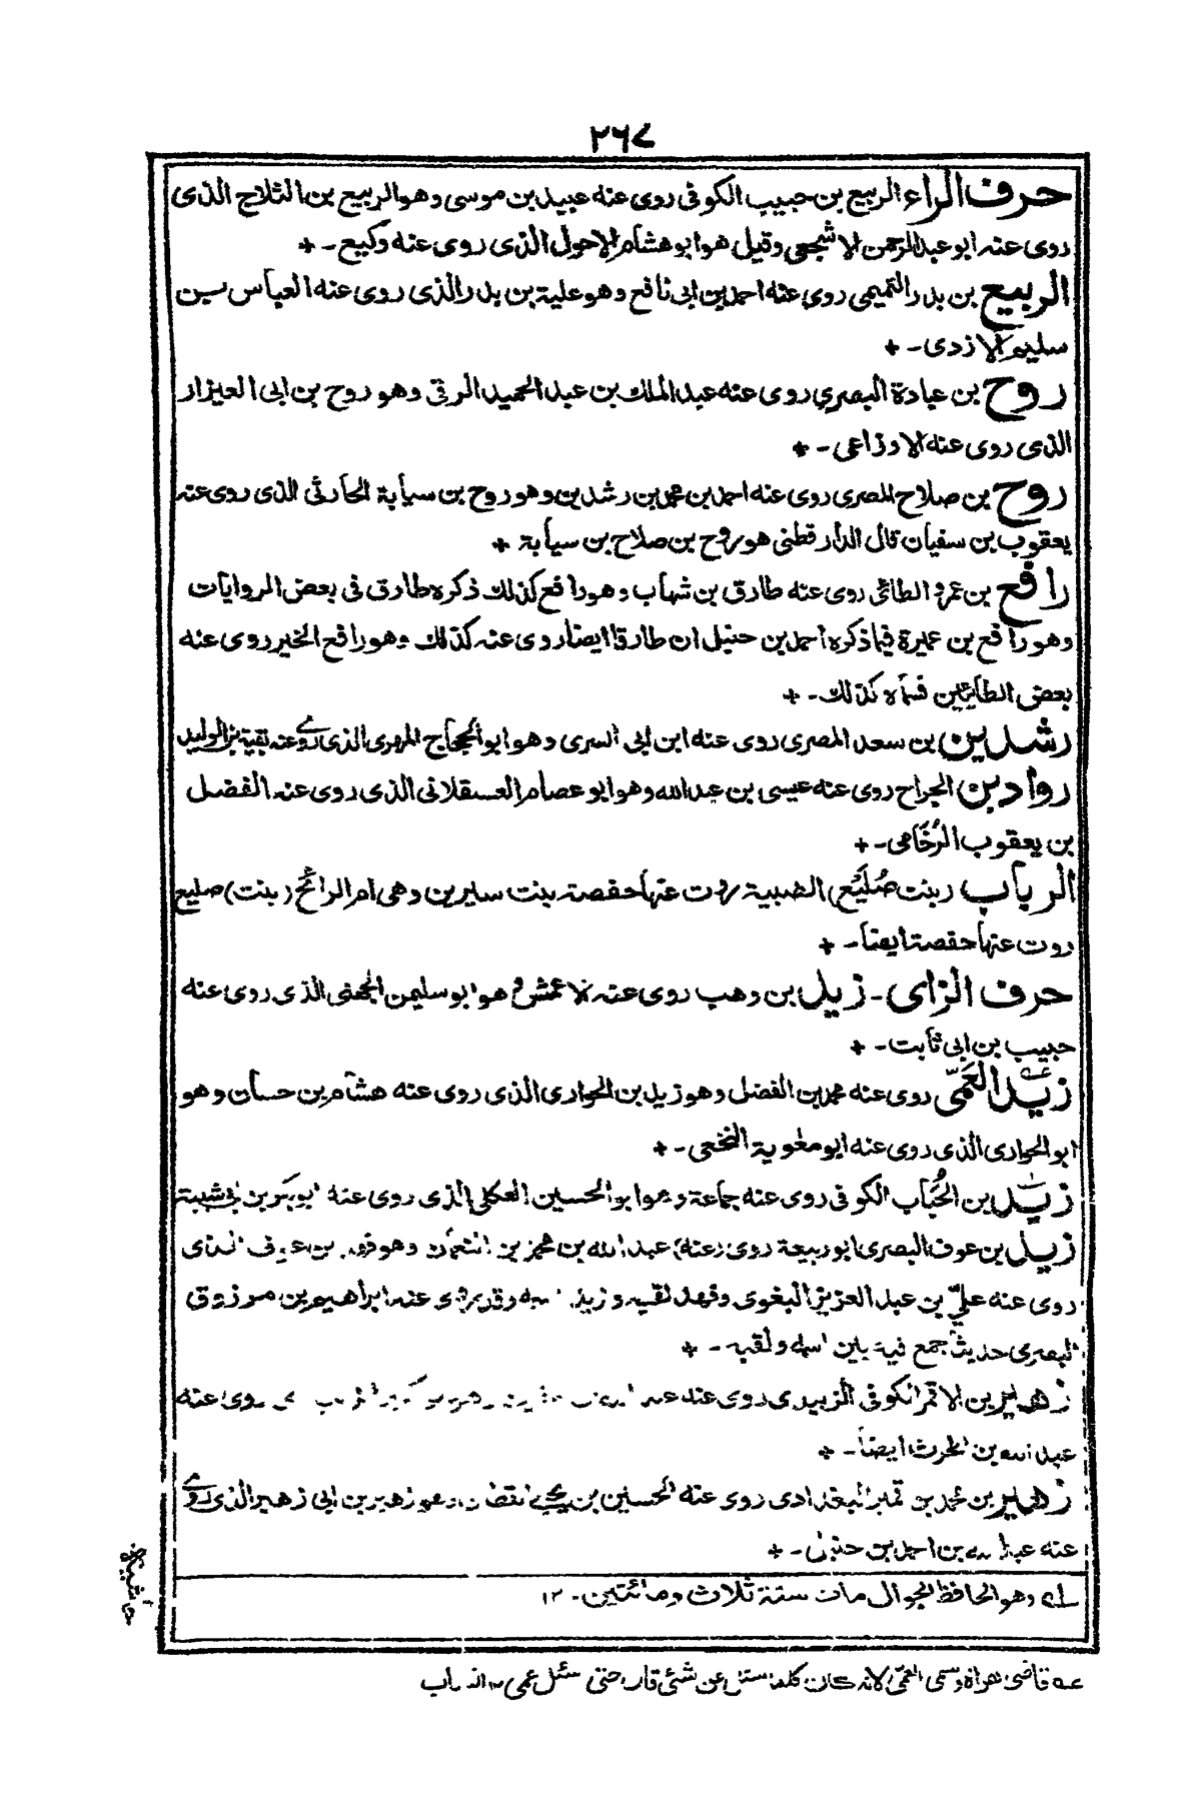 ٢٦٧
حرف الراء الربيع بن حبيب الكوفى روى عنه عبيد بن موسى وهو الربيع بن الثلاج الذى
روى عنه ابو عبد الرحمن الاشجعى وقيل هو ابو هشام الاحول الذى روى عنه وكيع ـ +
الربيع بن بدر التميمى روى عنه احمد بن ابى نافع وهو علية بن بدر الذى روى عنه العباس بن
سليم الازدى ـ +
روح بن عبادة البصرى روى عنه عبد الملك بن عبد الحميد الرقى وهو روح بن ابى العيزار
الذى روى عنه الاوزاعى ـ +
روح بن صلاح المصرى روى عنه احمد بن محمد بن رشدين وهو روح بن سيابة الحارثى الذى روى عنه
يعقوب بن سفيان قال الدارقطنى هو روح بن صلاح بن سيابة +
رافع بن عمرو الطائى روى عنه طارق بن شهاب وهو رافع كذلك ذكره طارق فى بعض الروايات
وهو رافع بن عميرة فيما ذكره احمد بن حنبل ان طارقا ايضا روى عنه كذلك وهو رافع الخير روى عنه
بعض الطائيين فسماه كذلك ـ +
رشدين بن سعد المصرى روى عنه ابن ابى السرى وهو ابو الحجاج المهرى الذى روى عنه بقية بن الوليد
رواد بن الجراح روى عنه عيسى بن عبد الله وهو ابو عصام العسقلانى الذى روى عنه الفضل
بن يعقوب الرُخَامى ـ +
الرباب (بنت صُلَيْع) الضبية روت عنها حفصة بنت سيرين وهى ام الرائح (بنت) صليع
روت عنها حفصة ايضا ـ +
حرف الزاى ـ زيد بن وهب روى عنه الاعمش وهو ابو سليمن الجهنى الذى روى عنه
حبيب بن ابى ثابت ـ +
زيد العَمّى روى عنه محمد بن الفضل وهو زيد بن الحوارى الذى روى عنه هشام بن حسان وهو
ابو الحوارى الذى روى عنه ابو معوية النخعى ـ +
زيد بن الحُبَاب الكوفى روى عنه جماعة وهو ابو الحسين العكلى الذى روى عنه ابو بكر بن ابى شيبة
زيد بن عوف البصرى ابو ربيعة روى (عنه) عبد الله بن محمد بن النعمان وهو فهد بن عوف الذى
روى عنه علىّ بن عبد العزيز البغوى وفهد لقبه وزيد اسمه وقد روى عنه ابراهيم بن مرزوق
البصرى حديثا جمع فيه بين اسمه ولقبه ـ +
زهير بن الاقمر الكوفى الزبيدى روى عنه عبد روى عنه
عبد الله بن الحرث ايضا ـ +
زهير بن محمد بن قمير البغدادى روى عنه الحسين بن يحيى القطان وهو زهير بن ابى زهير الذى روى
عنه عبد الله بن احمد بن حنبل ـ +
لــه وهو الحافظ الجوال مات سنة ثلاث ومائتين ـ ١٢
حاشية
عــه قاضى هراة وسمى العمّى لانه كان كلما سئل عن شئ قال حتى سئل عمى ١٢